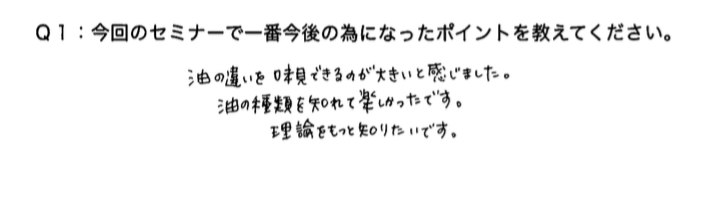 Q1：今回のセミナーで一番今後の為になったポイントを教えてください。
油の違いを味見できるのが大きいと感じました。
油の種類を知れて楽しかったです。
理論をもっと知りたいです。